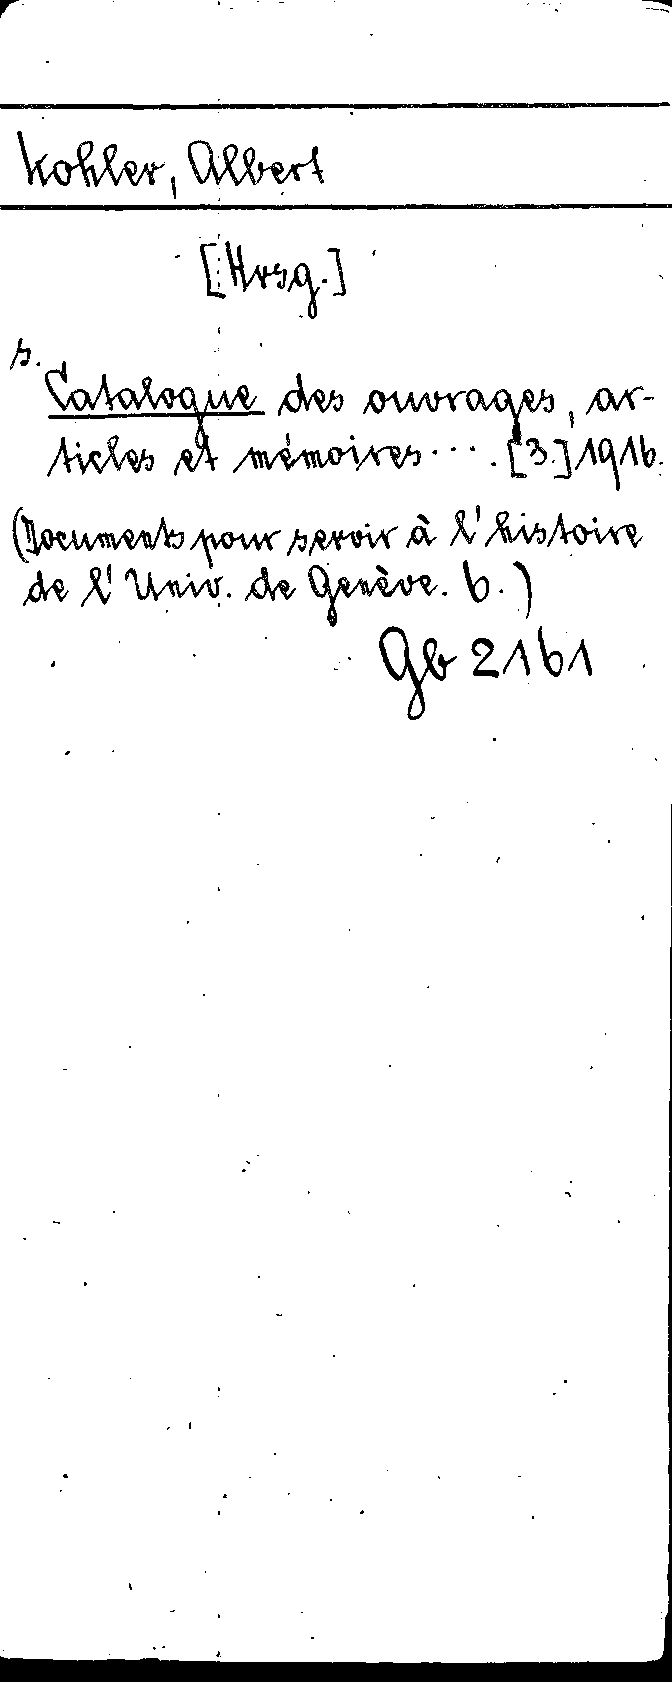 Kohler, Albert
[Hrsg.]
s.
Catalogue des ouvrages, ar-
ticles et mémoires.... [3.] 1916.
(Documents pour servir à l'histoire
de l'Univ. de Genève. 6.)
Gb 2161